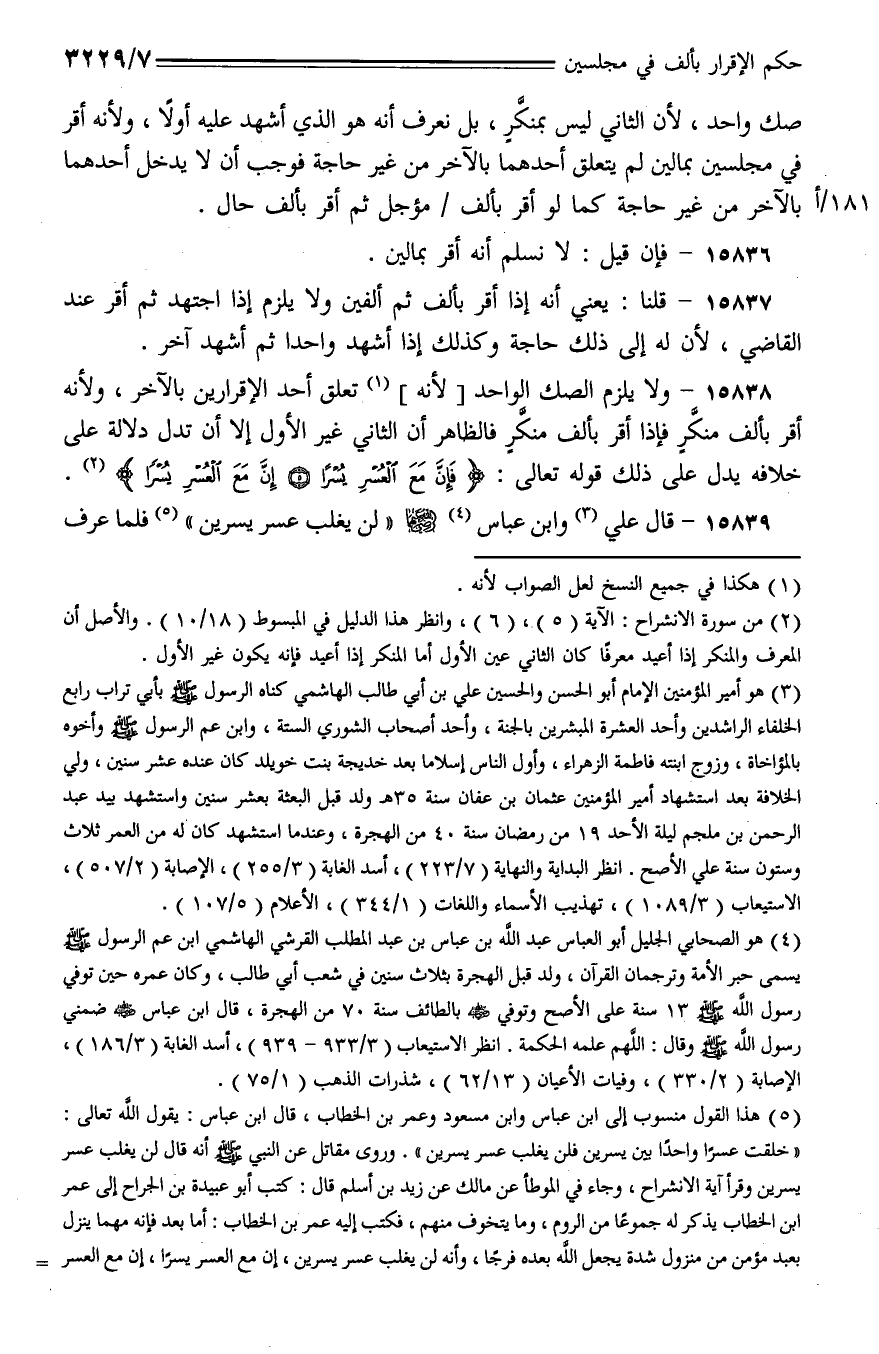 حكم الإقرار بألف في مجلسين ٣٢٢٩/٧
صك واحد ، لأن الثاني ليس بمنكَّرٍ ، بل نعرف أنه هو الذي أشهد عليه أولًا ، ولأنه أقر
في مجلسين بمالين لم يتعلق أحدهما بالآخر من غير حاجة فوجب أن لا يدخل أحدهما
١٨١/أ بالآخر من غير حاجة كما لو أقر بألف / مؤجل ثم أقر بألف حال .
١٥٨٣٦ – فإن قيل : لا نسلم أنه أقر بمالين .
١٥٨٣٧ – قلنا : يعني أنه إذا أقر بألف ثم ألفين ولا يلزم إذا اجتهد ثم أقر عند
القاضي ، لأن له إلى ذلك حاجة وكذلك إذا أشهد واحدا ثم أشهد آخر .
١٥٨٣٨ – ولا يلزم الصك الواحد [ لأنه ] (١) تعلق أحد الإقرارين بالآخر ، ولأنه
أقر بألف منكَّرٍ فإذا أقر بألف منكَّرٍ فالظاهر أن الثاني غير الأول إلا أن تدل دلالة على
خلافه يدل على ذلك قوله تعالى : ﴿ فَإِنَّ مَعَ ٱلْعُسْرِ يُسْرًا ۝٥ إِنَّ مَعَ ٱلْعُسْرِ يُسْرًا ﴾ (٢) .
١٥٨٣٩ – قال علي (٣) وابن عباس (٤) « لن يغلب عسر يسرين » (٥) فلما عرف
(١) هكذا في جميع النسخ لعل الصواب لأنه .
(٢) من سورة الانشراح : الآية ( ٥ ) ، ( ٦ ) ، وانظر هذا الدليل في المبسوط ( ١٠/١٨ ) . والأصل أن
المعرف والمنكر إذا أعيد معرفًا كان الثاني عين الأول أما المنكر إذا أعيد فإنه يكون غير الأول .
(٣) هو أمير المؤمنين الإمام أبو الحسن والحسين علي بن أبي طالب الهاشمي كناه الرسول ﷺ بأبي تراب رابع
الخلفاء الراشدين وأحد العشرة المبشرين بالجنة ، وأحد أصحاب الشوري الستة ، وابن عم الرسول ﷺ وأخوه
بالمؤاخاة ، وزوج ابنته فاطمة الزهراء ، وأول الناس إسلاما بعد خديجة بنت خويلد كان عنده عشر سنين ، ولي
الخلافة بعد استشهاد أمير المؤمنين عثمان بن عفان سنة ٣٥هـ ولد قبل البعثة بعشر سنين واستشهد بيد عبد
الرحمن بن ملجم ليلة الأحد ١٩ من رمضان سنة ٤٠ من الهجرة ، وعندما استشهد كان له من العمر ثلاث
وستون سنة علي الأصح . انظر البداية والنهاية ( ٢٢٣/٧ ) ، أسد الغابة ( ٢٥٥/٣ ) ، الإصابة ( ٥٠٧/٢ ) ،
الاستيعاب ( ١٠٨٩/٣ ) ، تهذيب الأسماء واللغات ( ٣٤٤/١ ) ، الأعلام ( ١٠٧/٥ ) .
(٤) هو الصحابي الجليل أبو العباس عبد الله بن عباس بن عبد المطلب القرشي الهاشمي ابن عم الرسول ﷺ
يسمى حبر الأمة وترجمان القرآن ، ولد قبل الهجرة بثلاث سنين في شعب أبي طالب ، وكان عمره حين توفي
رسول الله ﷺ ١٣ سنة على الأصح وتوفي ﵁ بالطائف سنة ٧٠ من الهجرة ، قال ابن عباس ﵁ ضمني
رسول الله ﷺ وقال : اللهم علمه الحكمة . انظر الاستيعاب ( ٩٣٣/٣ – ٩٣٩ ) ، أسد الغابة ( ١٨٦/٣ ) ،
الإصابة ( ٣٣٠/٢ ) ، وفيات الأعيان ( ٦٢/١٣ ) ، شذرات الذهب ( ٧٥/١ ) .
(٥) هذا القول منسوب إلى ابن عباس وابن مسعود وعمر بن الخطاب ، قال ابن عباس : يقول الله تعالى :
« خلقت عسرًا واحدًا بين يسرين فلن يغلب عسر يسرين » . وروى مقاتل عن النبي ﷺ أنه قال لن يغلب عسر
يسرين وقرأ آية الانشراح ، وجاء في الموطأ عن مالك عن زيد بن أسلم قال : كتب أبو عبيدة بن الجراح إلى عمر
ابن الخطاب يذكر له جموعًا من الروم ، وما يتخوف منهم ، فكتب إليه عمر بن الخطاب : أما بعد فإنه مهما ينزل
بعبد مؤمن من منزول شدة يجعل الله بعده فرجًا ، وأنه لن يغلب عسر يسرين ، إن مع العسر يسرًا ، إن مع العسر =